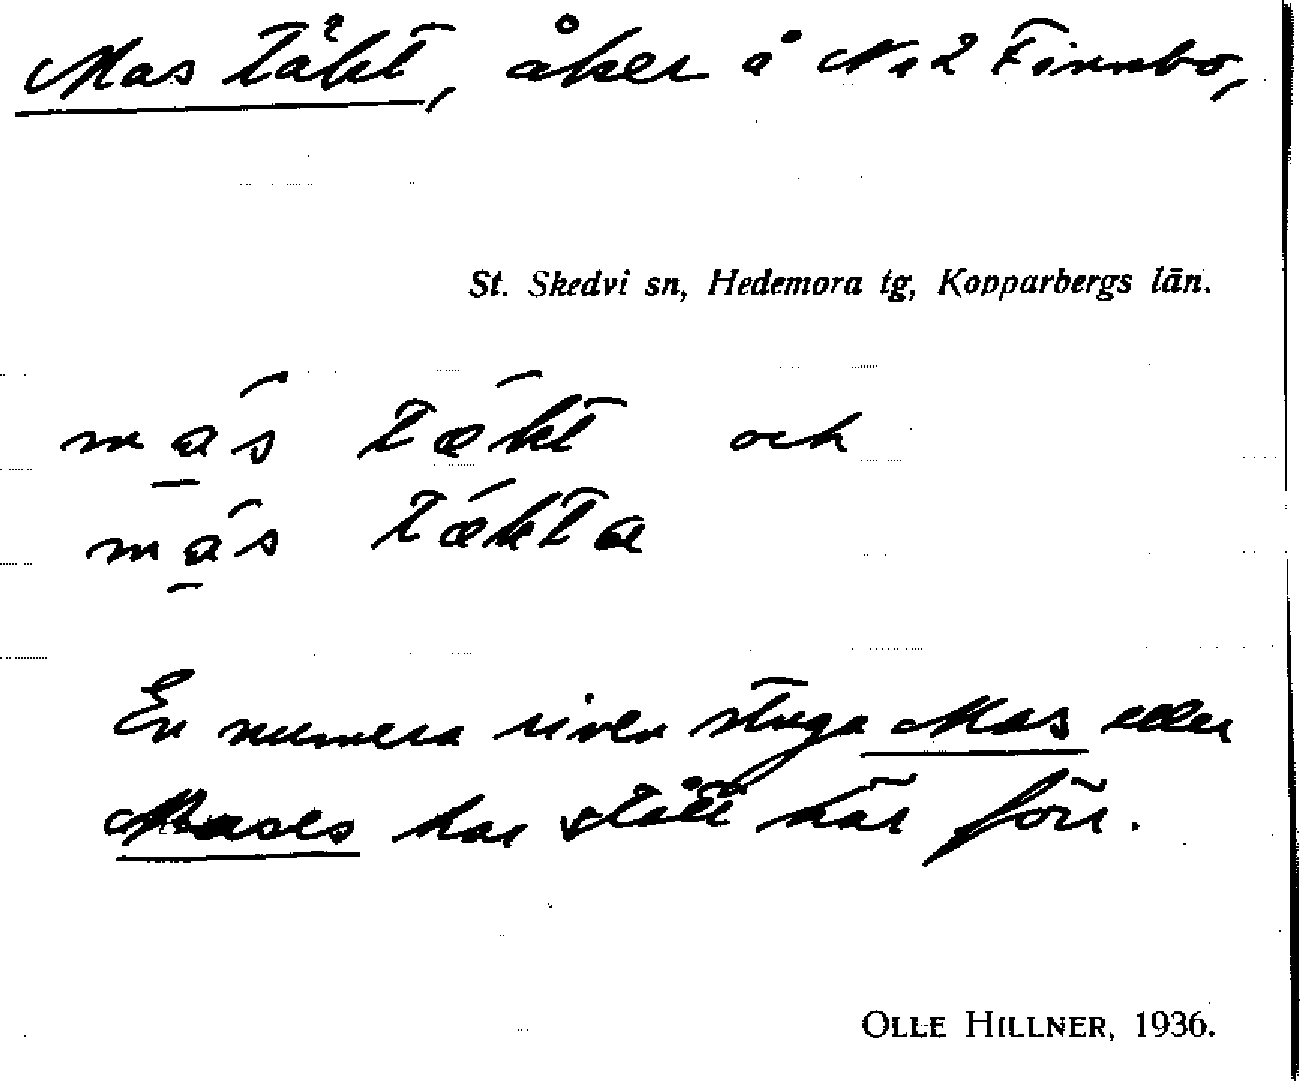 Mas täkt, åker å No 2 Finnbo,
St. Skedvi sn, Hedemora tg, Kopparbergs län.
ma̱s tækt och
ma̱s tækta
En numera riven stuga Mas eller
Mases har stått här förr.
OLLE HILLNER, 1936.